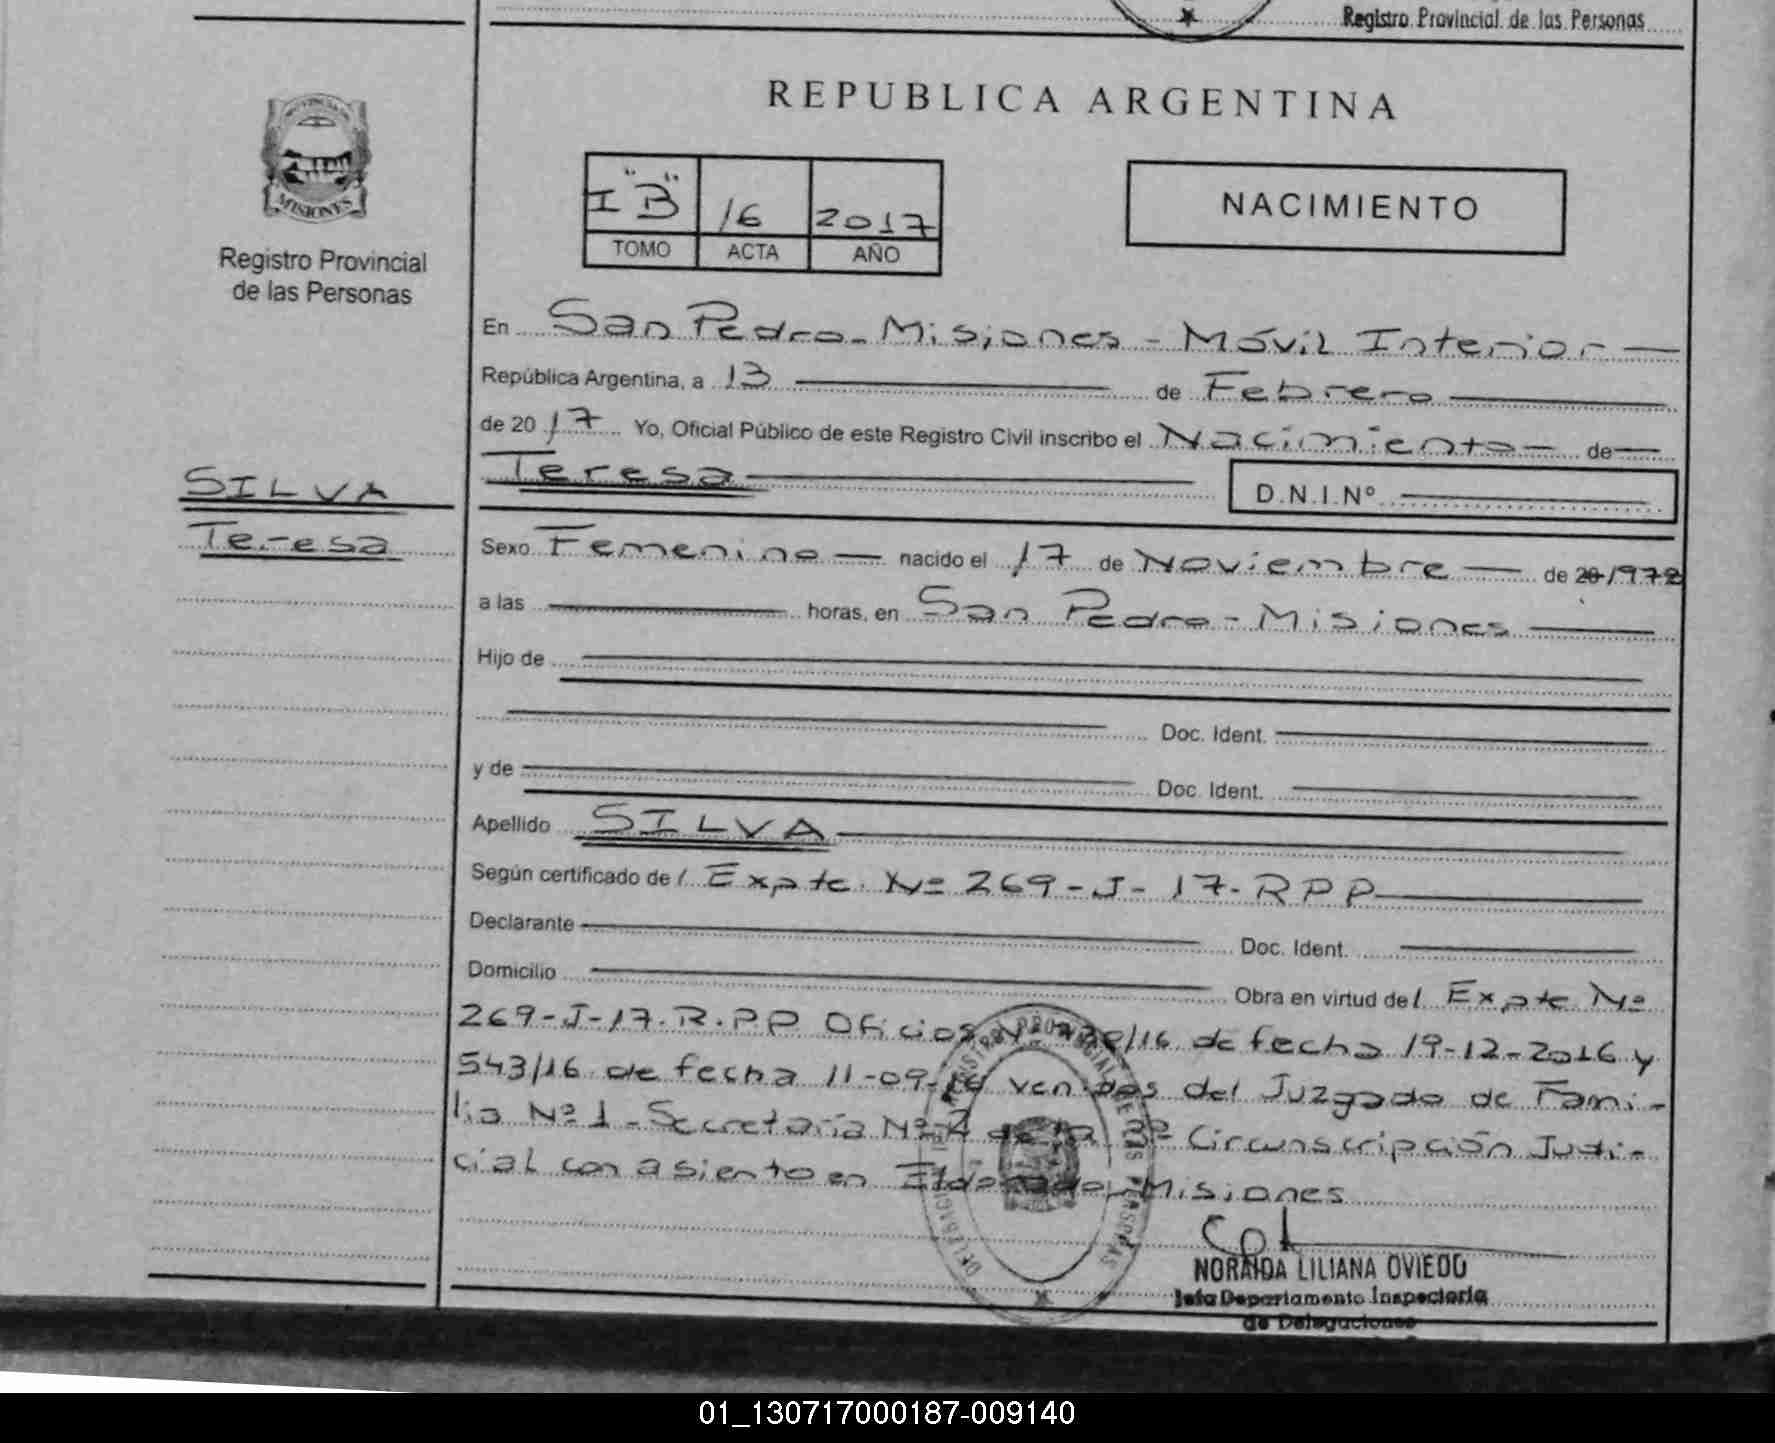 Registro Provincial de las Personas
REPUBLICA ARGENTINA
MISIONES
Registro Provincial
de las Personas
I "B" 16 2017
TOMO ACTA AÑO
NACIMIENTO
En San Pedro - Misiones - Móvil Interior
República Argentina, a 13 de Febrero
de 2017 Yo, Oficial Público de este Registro Civil inscribo el Nacimiento de
Teresa D.N.I.Nº
SILVA
Teresa
Sexo Femenino nacido el 17 de Noviembre de 20 1972
a las horas, en San Pedro - Misiones
Hijo de
Doc. Ident.
y de Doc. Ident.
Apellido SILVA
Según certificado de / Expte. Nº 269-J-17-RPP
Declarante Doc. Ident.
Domicilio Obra en virtud de / Expte Nº
269-J-17-R.PP Oficios /16 de fecha 19-12-2016 y
543/16 de fecha 11-09-16 venidos del Juzgado de Fami-
lia Nº 1 - Secretaría Nº de la 3º Circunscripción Judi-
cial con asiento en Eldorado, Misiones
NORAIDA LILIANA OVIEDO
Jefa Departamento Inspectoria
de Delegaciones
01_130717000187-009140